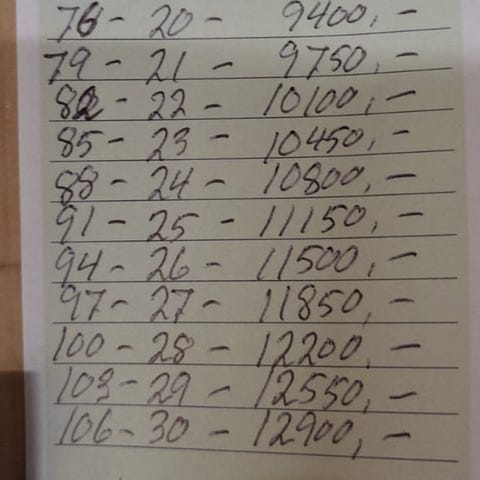 76 - 20 - 9400,-
79 - 21 - 9750,-
82 - 22 - 10100,-
85 - 23 - 10450,-
88 - 24 - 10800,-
91 - 25 - 11150,-
94 - 26 - 11500,-
97 - 27 - 11850,-
100 - 28 - 12200,-
103 - 29 - 12550,-
106 - 30 - 12900,-